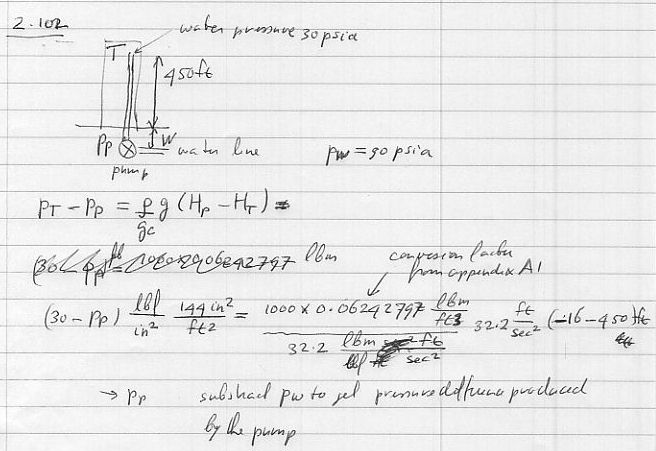 2.102
water pressure 30 psia
T
450 ft
W
Pp
water line
pump
pw = 90 psia
pT - pp = ρ/gc g (Hp - HT) =
lbm
conversion factor
from appendix A1
(30 - pp) lbf/in² 144 in²/ft² = 1000 x 0.06242797 lbm/ft3 / 32.2 lbm ft/lbf sec² 32.2 ft/sec² (-16 - 450) ft
→ pp subtract pw to get pressure difference produced
by the pump